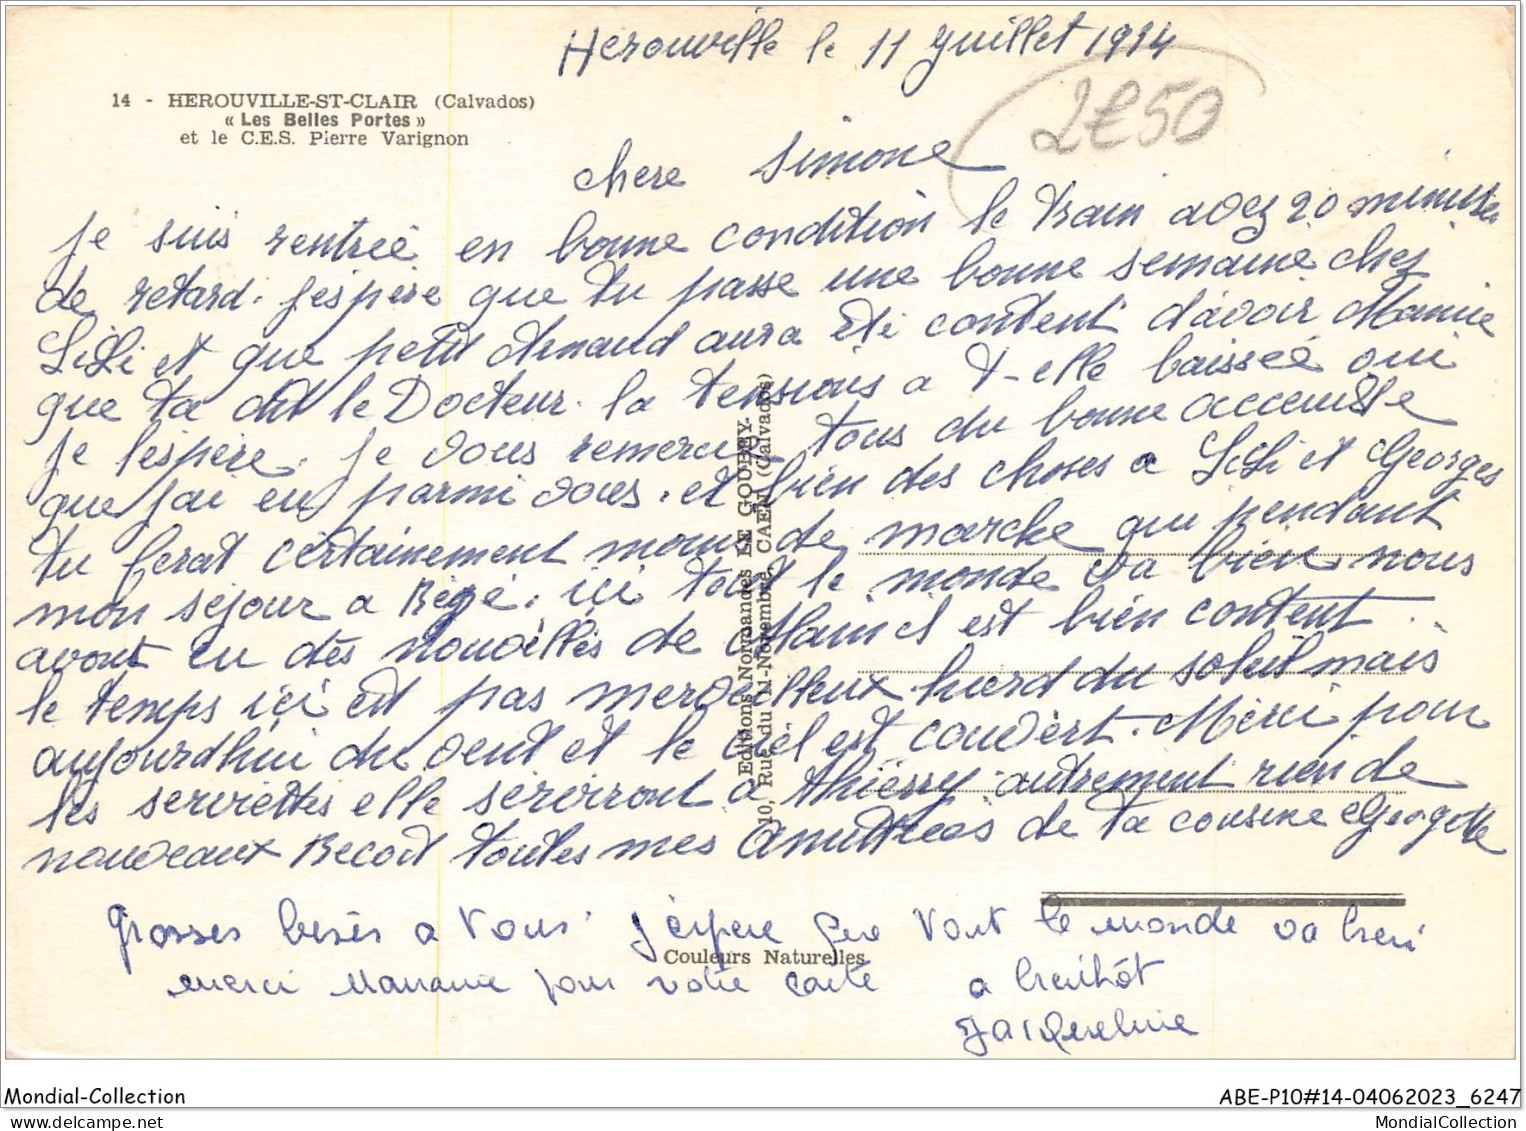 Hérouville le 11 Juillet 1994
14 - HEROUVILLE-ST-CLAIR (Calvados)
« Les Belles Portes »
et le C.E.S. Pierre Varignon
2€50
chere Simone
Je suis rentreé en bonne condition le train avez 20 minutes
de retard. J'espère que tu passe une bonne semaine chez
LiLi et que petit Arnaud aura été content d'avoir Mamie
que ta dit le Docteur. la tensions a t-elle baisseé oui
je l'espère. Je vous remercie tous du bonne acceuille
que j'ai eu parmi vous. et bien des choses a LiLi et Georges
tu ferat certainement moins de marche qu pendant
mon séjour a Bégé. ici tout le monde va bien nous
avont eu des nouvelles de est bien content..
le temps ici est pas merveilleux hierd du soleil mais
aujourdhui du vent et le ciel est couvert. Merci pour
les serviettes elle serviront a thierry autrement rien de
nouveaux Recoit toutes mes amitiées de ta cousine Georgette
Editions Normandes LE GOUBEY
10, Rue du 11-Novembre, CAEN (Calvados)
Grosses besés a Vous j'éspere que tout le monde va bien
Couleurs Naturelles
merci Manane pour votre carte a bienthôt
Jacqueline
Mondial-Collection
ABE-P10#14-04062023_6247
MondialCollection